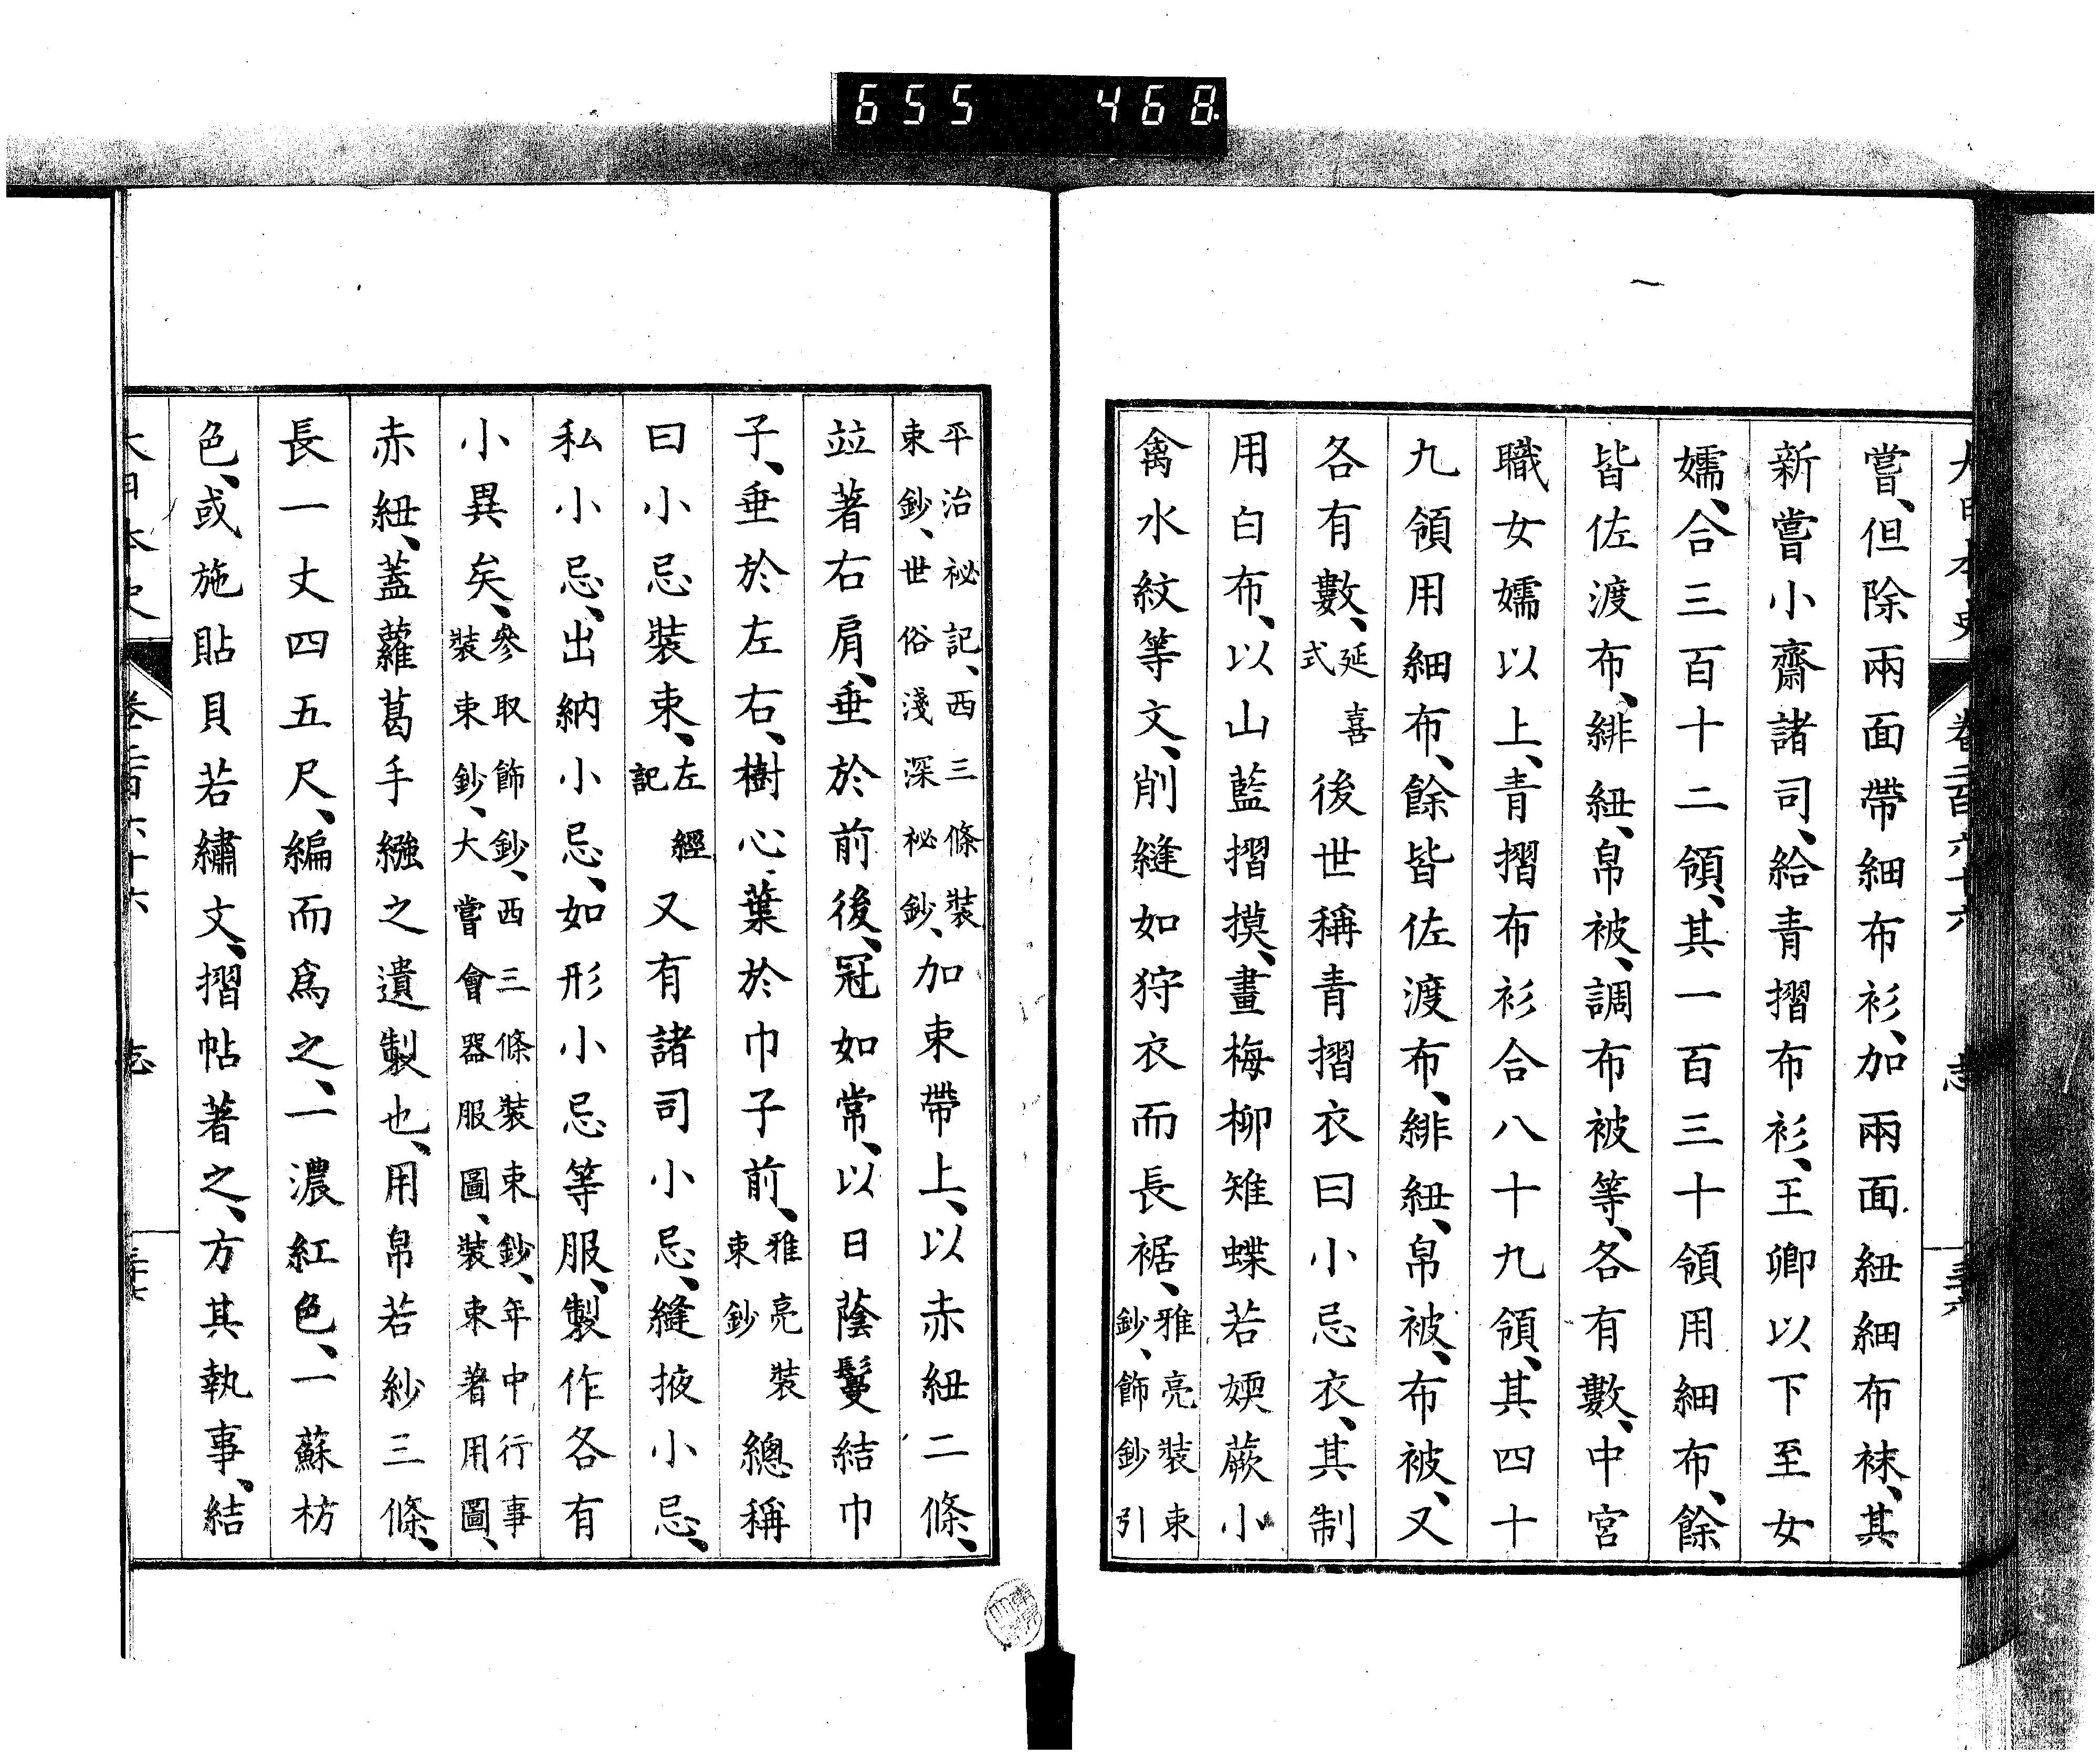 655 468
嘗、但除兩面帶細布衫、加兩面紐細布袜、其
新嘗小齋諸司、給青摺布衫、王卿以下至女
嬬、合三百十二領、其一百三十領用細布、餘
皆佐渡布、緋紐、帛被、調布被等、各有數、中宮
職女嬬以上、青摺布衫合八十九領、其四十
九領用細布、餘皆佐渡布、緋紐、帛被、布被、又
各有數、延喜式後世稱青摺衣曰小忌衣、其制
用白布、以山藍摺摸、畫梅柳雉蝶若㛱蕨小
禽水紋等文、削縫如狩衣而長裾、雅亮裝束鈔、飾鈔引
平治祕記、西三條裝束鈔、世俗淺深秘鈔、加束帶上、以赤紐二條、
竝著右肩、垂於前後、冠如常、以日蔭鬘結巾
子、垂於左右、樹心葉於巾子前、雅亮裝束鈔總稱
曰小忌裝束、左經記又有諸司小忌、縫掖小忌、
私小忌、出納小忌、如形小忌等服、製作各有
小異矣、參取飾鈔、西三條裝束鈔、年中行事裝束鈔、大嘗會器服圖、裝束著用圖、
赤紐、蓋蘿葛手繦之遺製也、用帛若紗三條、
長一丈四五尺、編而爲之、一濃紅色、一蘇枋
色、或施貼貝若繡文、摺帖著之、方其執事、結